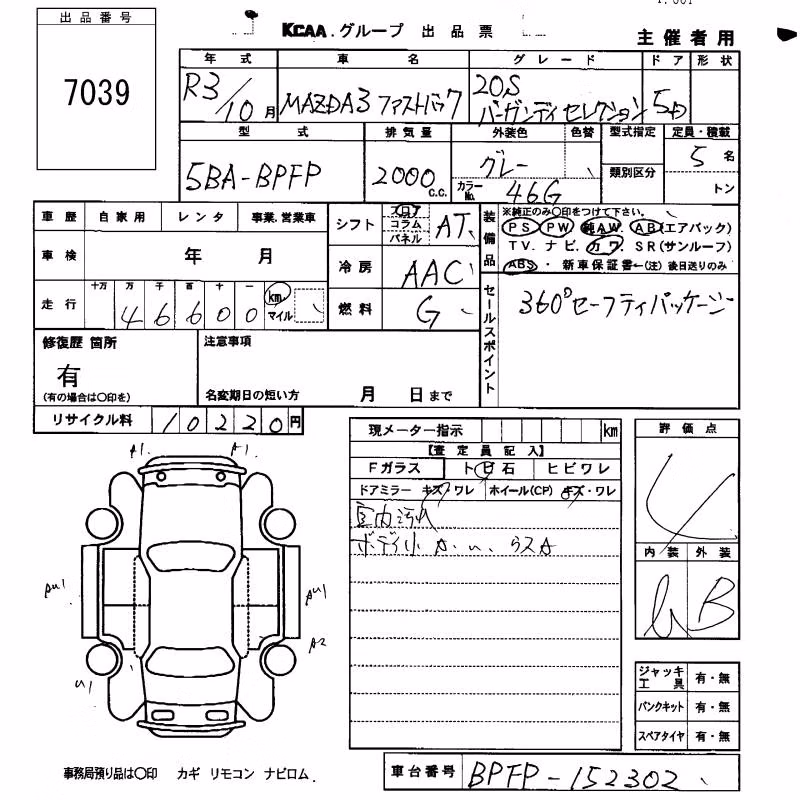 出品番号
7039
KCAA.グループ 出品票
主催者用
年式 車名 グレード ドア 形状
R3/10月 MAZDA3 ファストバック 20S バーガンディセレクション 5D
型式 排気量 外装色 色替 型式指定 定員・積載
5BA-BPFP 2000 c.c. グレー 類別区分 5名
カラーNo. 46G トン
車歴 自家用 レンタ 事業.営業車
シフト フロア コラム パネル AT
装備品 ※純正のみ〇印をつけて下さい。
PS PW 純AW. AB(エアバック)
TV. ナビ. カワ. SR(サンルーフ)
ABS・新車保証書←(注)後日送りのみ
車検 年 月
冷房 AAC
走行 十万 万 千 百 十 一
46600 km マイル
燃料 G
セールスポイント 360°セーフティパッケージ
修復歴 箇所
有
(有の場合は〇印を)
注意事項
名変期日の短い方 月 日まで
リサイクル料 10220円
現メーター指示 km
【査定員記入】
Fガラス トビ石 ヒビワレ
ドアミラー キズ・ワレ ホイール(CP) キズ・ワレ
室内汚れ
ボディ小A.U.
評価点
4
内装 外装
B
A1. A1.
AU1 AU1
A2
U1
ジャッキ工具 有・無
パンクキット 有・無
スペアタイヤ 有・無
事務局預り品は〇印 カギ リモコン ナビロム.
車台番号 BPFP-152302